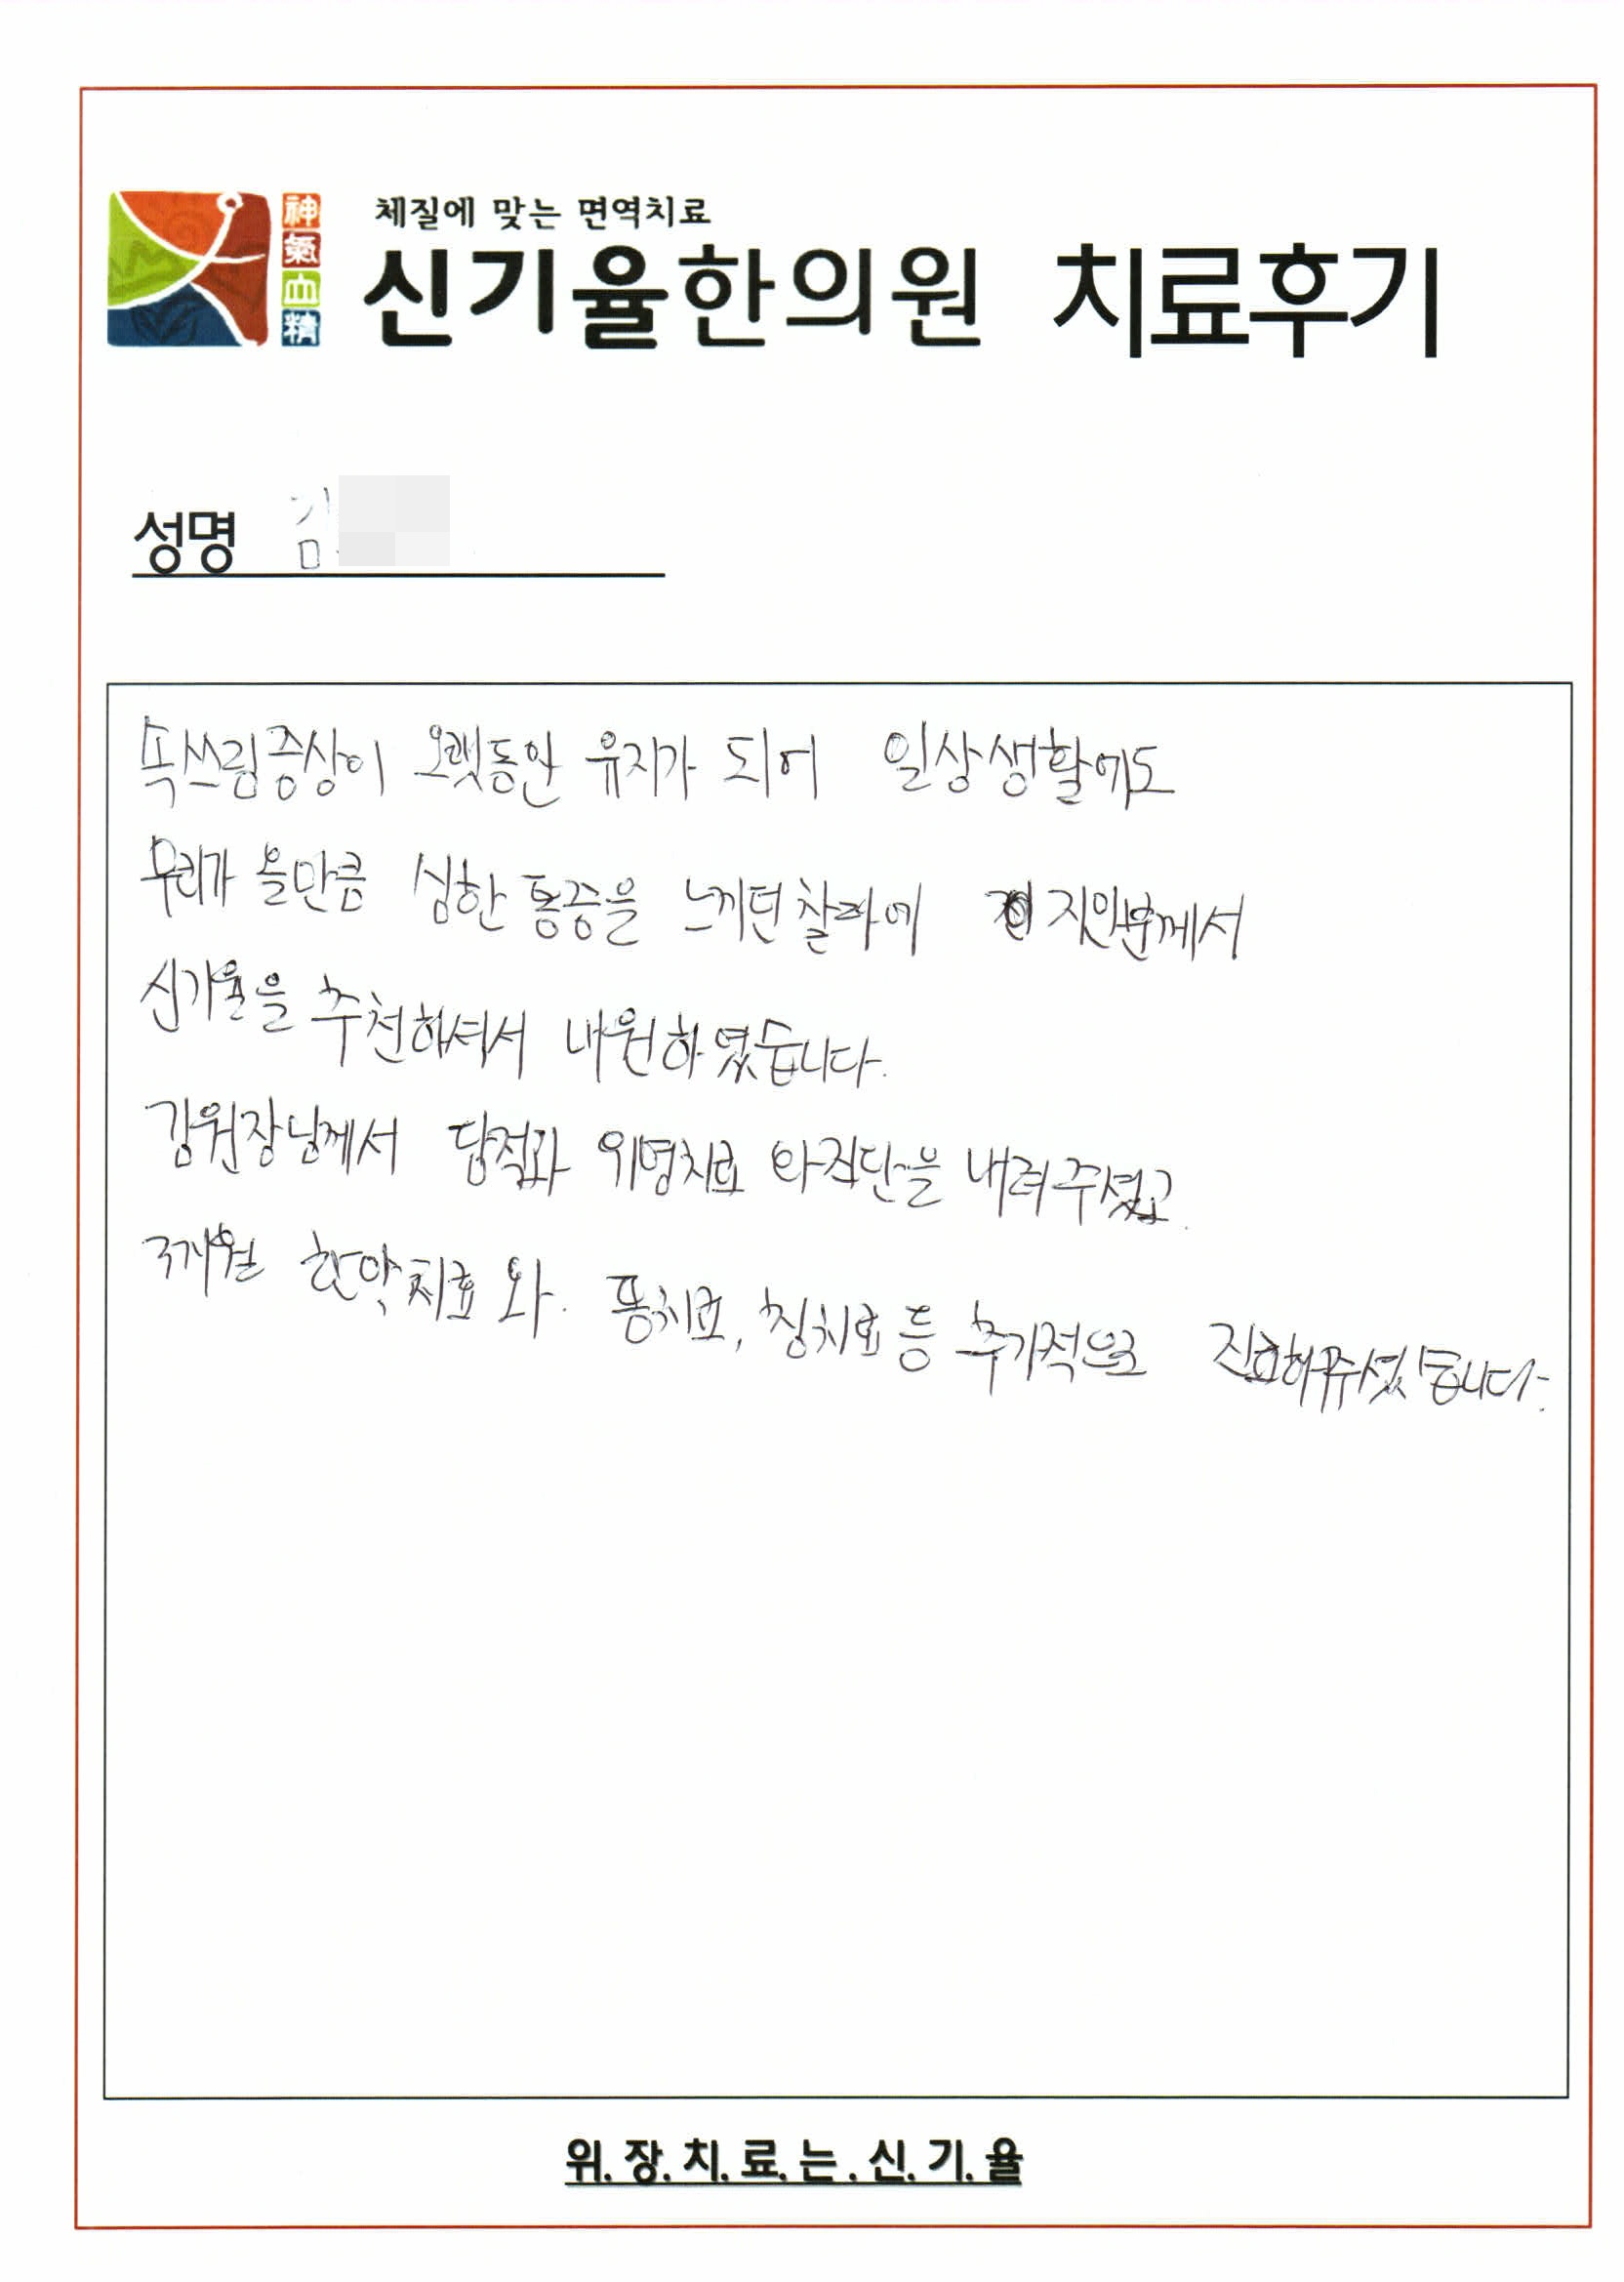 神氣血精
체질에 맞는 면역치료
신기율한의원 치료후기
성명 김
속쓰림증상이 오랫동안 유지가 되어 일상생활에도
무리가 올만큼 심한 통증을 느끼던 찰라에 지인분께서
신기율을 추천해셔서 내원하였습니다.
강원장님께서 담적과 위염치료 와 진단을 내려주셨고
3개월 한약치료 와. 통치료, 침치료 등 추가적으로 진료해주셨습니다.
위.장.치.료.는.신.기.율